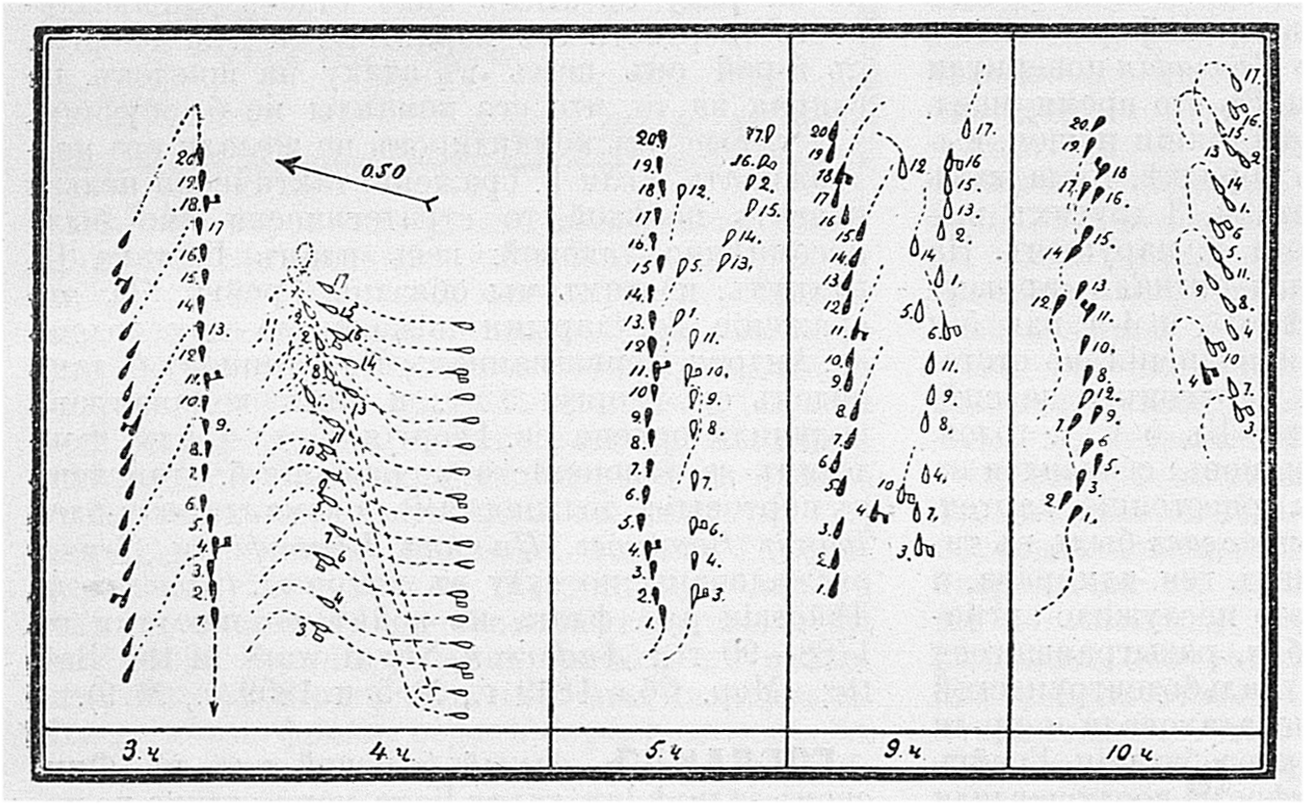 0.50
20.
19.
18.
17
16.
15.
14.
13
12.
11.
10.
9.
8.
7.
6.
5.
4.
3.
2.
1.
17
12
16
2
14
11
8
13
10
7
4
3.
20.
19.
18
17.
16.
15
14.
13.
12
11.
10
9.
8.
7.
6.
5.
4.
3.
2.
17.
16.
2.
15.
12.
14.
13.
5.
1.
11.
10.
9.
8.
7.
6.
4.
3.
20
19
18
17
16
15.
14.
13
12
11
10.
9.
8.
7.
6.
5.
4
3.
2.
1.
17.
12
16
15.
13.
2.
14
1.
5.
6.
11.
9.
8.
4.
10
7.
3.
20.
19.
18
17.
16.
15.
14
13
12
11.
10.
8.
12.
9.
7.
6
5.
3.
2
1.
17.
16.
15.
13
2.
14
1.
6.
5
11.
8
9
10
7.
4
3.
3.ч
4.ч
5.ч
9.ч
10.ч